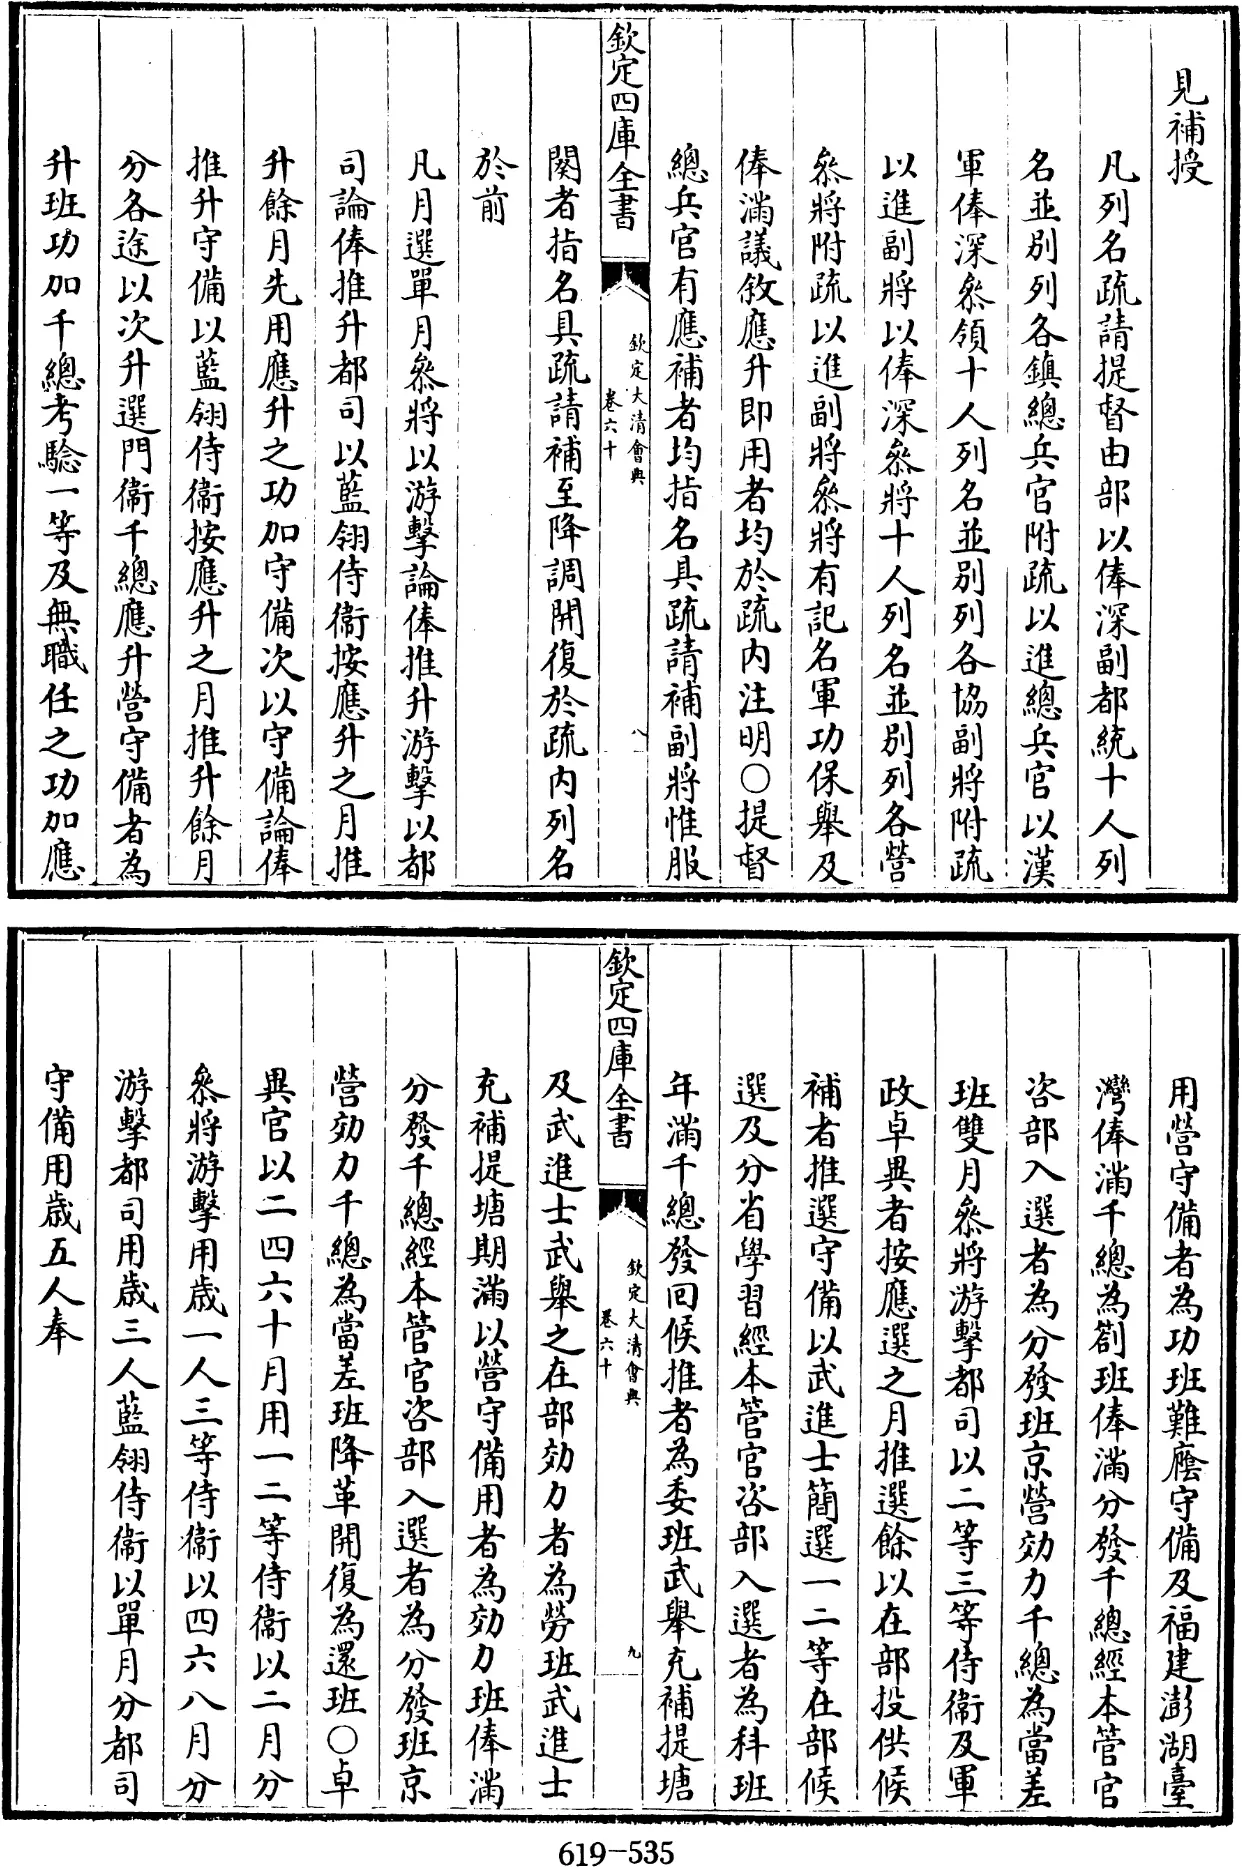 見補授
凡列名疏請提督由部以俸深副都統十人列
名並別列各鎮總兵官附疏以進總兵官以漢
軍俸深叅領十人列名並別列各協副將附疏
以進副將以俸深叅將十人列名並別列各營
叅將附疏以進副將叅將有記名軍功保舉及
俸滿議敘應升即用者均於疏内注明〇提督
總兵官有應補者均指名具疏請補副將惟服
欽定四庫全書
欽定大清會典
卷六十
八
闋者指名具疏請補至降調開復於疏内列名
於前
凡月選單月叅將以游擊論俸推升游擊以都
司論俸推升都司以藍翎侍衛按應升之月推
升餘月先用應升之功加守備次以守備論俸
推升守備以藍翎侍衛按應升之月推升餘月
分各途以次升選門衛千總應升營守備者為
升班功加千總考驗一等及無職任之功加應
用營守備者為功班難廕守備及福建澎湖臺
灣俸滿千總為劄班俸滿分發千總經本管官
咨部入選者為分發班京營効力千總為當差
班雙月叅將游擊都司以二等三等侍衛及軍
政卓異者按應選之月推選餘以在部投供候
補者推選守備以武進士簡選一二等在部候
選及分省學習經本管官咨部入選者為科班
年滿千總發回候推者為委班武舉充補提塘
欽定四庫全書
欽定大清會典
卷六十
九
及武進士武舉之在部効力者為勞班武進士
充補提塘期滿以營守備用者為効力班俸滿
分發千總經本管官咨部入選者為分發班京
營効力千總為當差班降革開復為還班〇卓
異官以二四六十月用一二等侍衛以二月分
叅將游擊用歲一人三等侍衛以四六八月分
游擊都司用歲三人藍翎侍衛以單月分都司
守備用歲五人奉
619-535